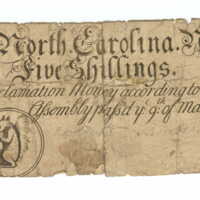 North Carolina. N
Five Shillings.
clamation Money according to
Assembly pass'd yͤ 9ͭͪ of Ma